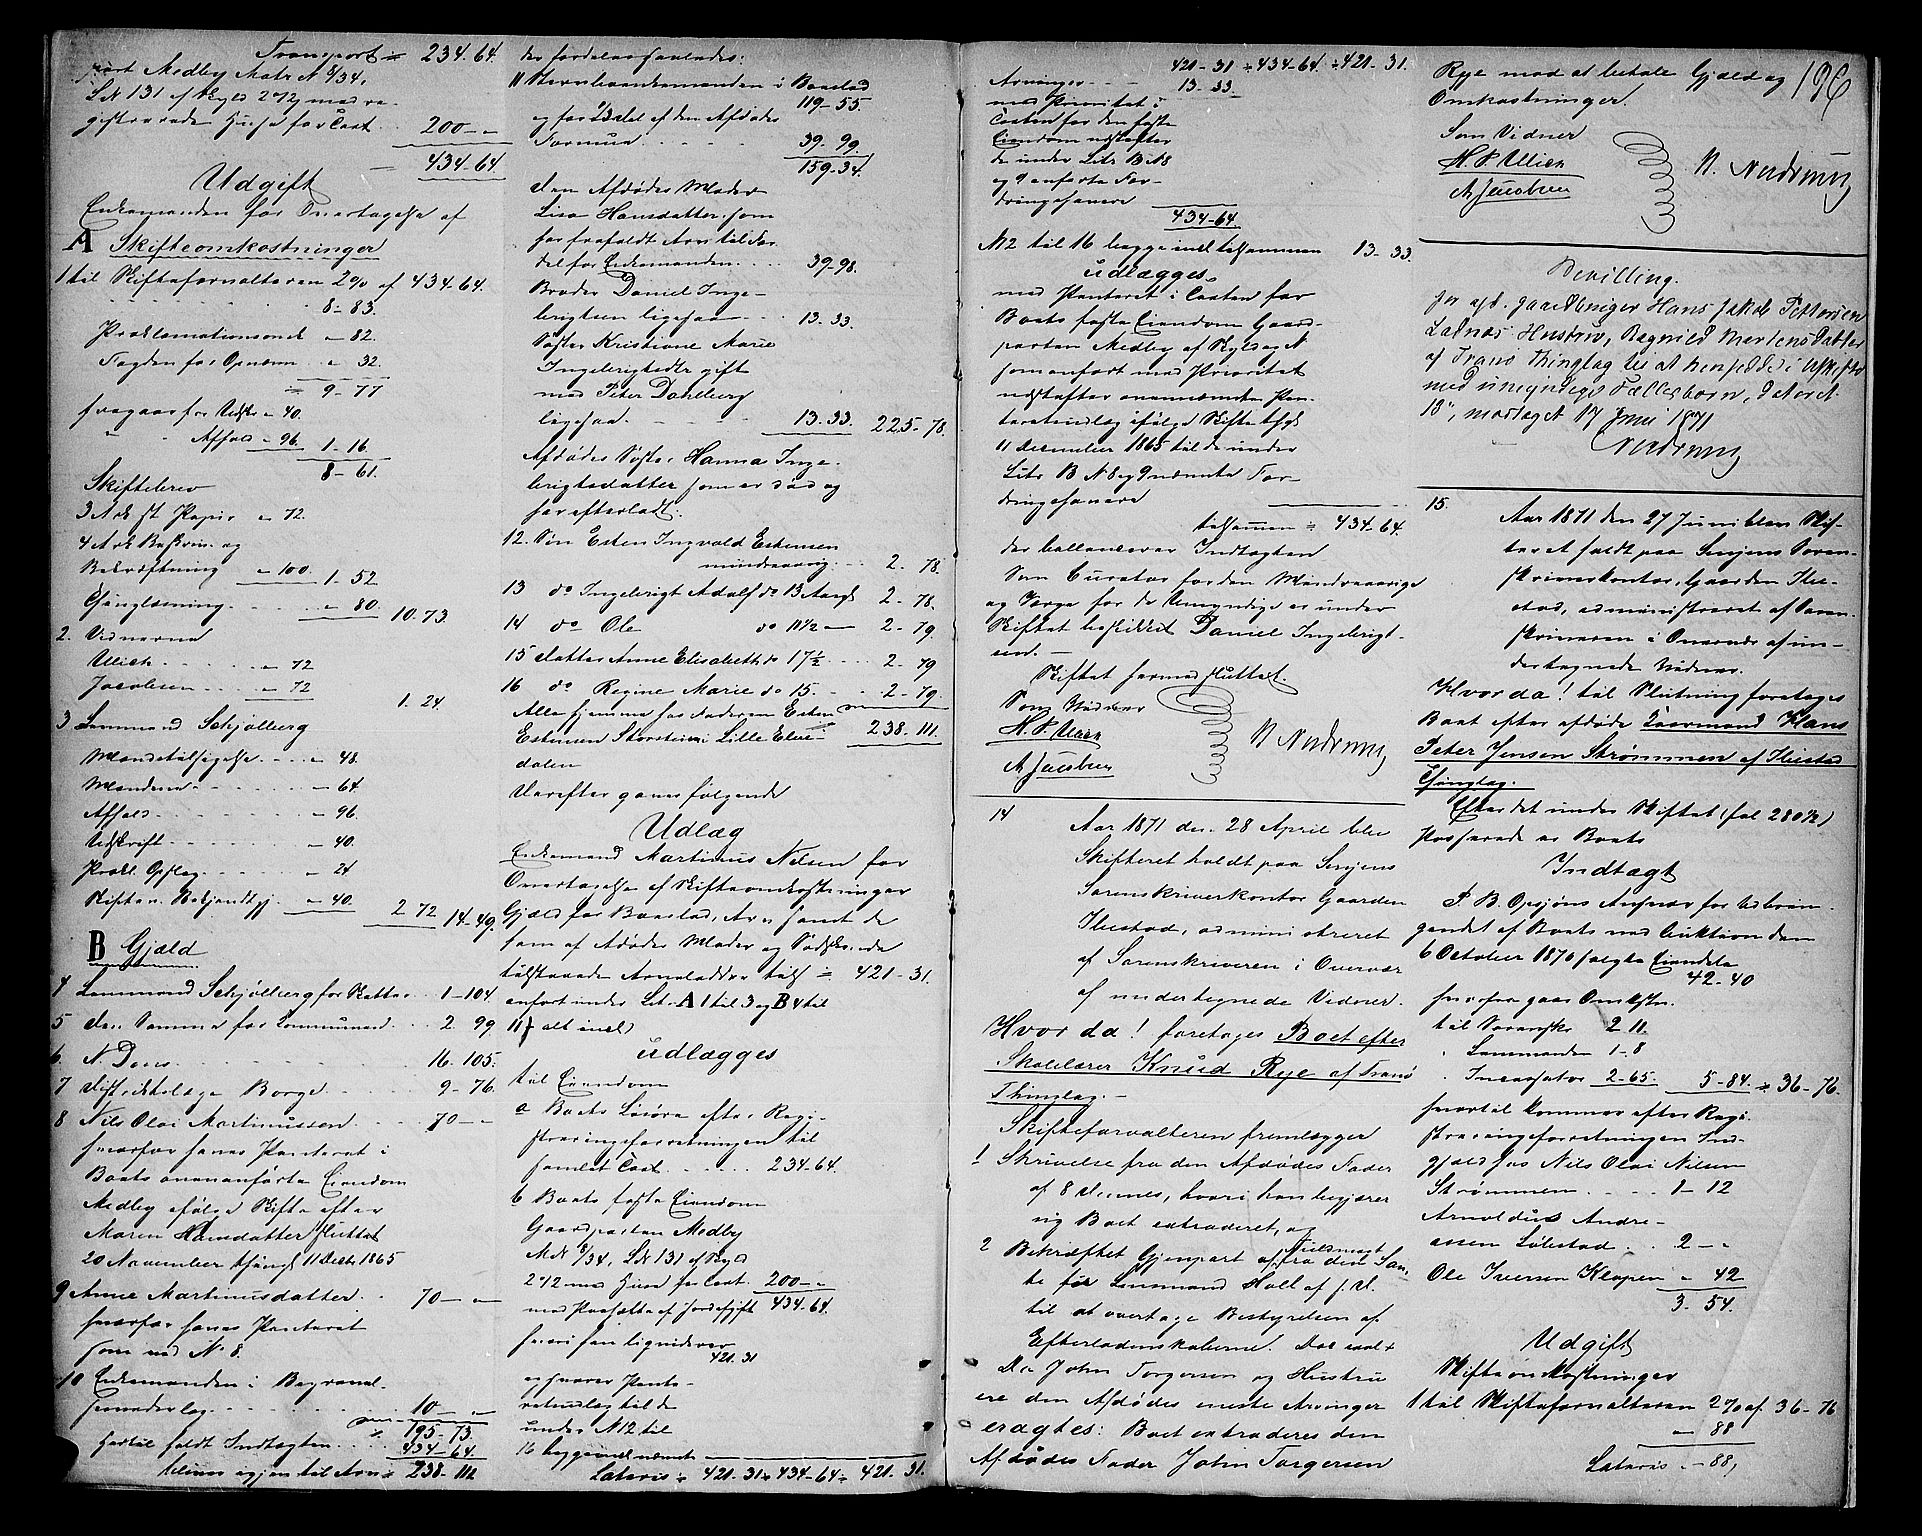 Transport = 234. 64.
part Medby Matr N 8/34,
LN 131 af Skyld 2 72 med va-
giftrarede Huse for Taxt .. 200 — "
434-64
Udgift
Enkemanden for Overtagelse af
A Skifteomkostninger
1 til Skifteforvalteren 2% af 434-64.
8-83.
Proklamationsomk " 82.
Fogden for Opnævn. " 32.
= 9-77
fragaar for Udskr " 40.
" Affald " 96. 1-16
8-61.
Skiftebrev
3 Ark st. Papir " 72.
4 Ark Beskriv. og
Bekræftning " 100. 1. 52
Thinglæsning " 80. 10. 73.
2. Vidnerne
Ulich " 72
Jacobsen " 72
1. 24.
3 Lensmand Schjølberg
Mændstilsigelse " 48.
Mændene " 64.
Affald " 96.
Udskrift " 40.
Prokl. Opslag " 24
Skiftets Bekjendtgj. " 40. 2 72 14-49.
B Gjæld
4 Lensmand Schjølberg for Skatter .. 1-104.
5 den Samme for Kommunen .. 2. 99
6. N. Daes 16. 105.
7 Distriktslæge Borge 9-76.
8 Nils Olai Martinussen 70 — "
hvorfor haves Panteret i
Boets ovenanførte Eiendom
Medby ifølge Skifte efter
Maren Hansdatter sluttet
20 November thingl 11 Decbr 1865
9 Anne Martinusdatter 70 — "
hvorfor haves Panteret
som ved N 8.
10 Enkemanden i Begravel-
seudlæg 10 — "
195-73.
hertil holdt Indtægten 434-64.
bliver igjen til Arv = 238. 111.
der fordeles saaledes:
11 Stervboenkemanden i Boeslod
119-55
og for 1/3 del af den Afdødes
Formue 39. 99.
159-34.
den Afdødes Moder
Lisa Hansdatter, som
har frafaldt Arv til For-
del for Enkemanden 39-98.
Broder Daniel Inge-
brigtsen ligesaa 13. 33.
Søster Kristiane Marie
Ingebrigtsdtr gift
med Peter Dahlberg
ligesaa 13. 33. 225-78.
Afdødes Søster Hanna Inge-
brigtsdatter som er død og
har efterladt:
12. Søn Esten Ingvald Estensen
mindreaarig 2. 78.
13 do Ingebrigt Adolf do 13 Aar gl 2-78.
14 do Ole do 11 1/2 — 2-79.
15 datter Anne Elisabeth do 17 1/2 2-79
16 do Regine Marie do 15. 2-79.
Alle hjemme hos Faderen Esten
Estensen Storsten i Lille Elve- 238. 111.
dalen
Herefter gøres følgende
Udlæg
Enkemand Martinus Nilsen for
Overtagelse af Skifteomkostninger
Gjæld for Boeslod, Arv samt de
ham af Afdødes Moder og Sødskende
tilstaaede Arvelodder tils = 421-31.
anført under Lit. A 1 til 3 og B 4 til
11 alt incl)
udlægges
til Eiendom
a Boets Løsøre efter Regi-
streringsforretningen til
samlet Taxt 234-64.
b Boets faste Eiendom
Gaardparten Medby
MN 8/34, LN 131 af Skyld
2 72 med Huse for Taxt 200 — "
med Paasatte af Jordafgift 434-64.
hvori han liquiderer
421. 31
og svarer Pante-
retudlæg til de
under N 12 til
16 begge incl nævnte
Lateris = 421-31 = 434-64 = 421. 31.
421-31 = 434-64. = 421-31.
Arvinger 13. 33.
med Prioritet i
Taxten for den faste
Eiendom næstefter
de under Litr B N 8
og 9 anførte For-
dringshavere
434-64.
N 12 til 16 begge incl tilsammen 13-33.
udlægges
med Panteret i Taxten for
Boets faste Eiendom Gaard-
parten Medby af Skyld og N
som anført med Prioritet
næstefter ovennævnte Pan-
teretudlæg ifølge Skifte thgl
11 December 1865 til de under
Litr B N 8 og 9 nævnte For-
dringshavere
tilsammen = 434-64.
der ballancerer Indtægten
Som Curator for den Mindreaarige
og Værge for de Umyndige er under
Skiftet beskikket Daniel Ingebrigt-
sen. —
Skiftet hermed sluttet.
Som Vidner
H. P. Ulich
A Jacobsen
N Nedrum
14 Aar 1871 den 28 April blev
Skifteret holdt paa Senjens
Sorenskriverkontor Gaarden
Ibestad, administreret
af Sorenskriveren i Overvær
af undertegnede Vidner.
Hvor da! foretoges Boet efter
Skolelærer Knud Rye af Tranø
Thinglag. —
Skifteforvalteren fremlægger
1 Skrivelse fra den Afdødes Fader
af 8 dennes, hvori han begjærer
sig Boet extraderet, og
2 Bekræftet Gjenpart af Fuldmagt fra den Sam-
me for Lensmand Holl af f. D.
til at overtage Bestyrelsen af
Efterladenskaberne. Da
John Torgersen og Hustru
ere den Afdødes eneste Arvinger
eragtes: Boet extraderes den
Afdødes Fader John Torgersen
Rye mod at betale Gjæld og 196
Omkostninger.
Som Vidner
H. P. Ulich
A. Jacobsen
N. Nedrum
Bevilling.
for afd. gaardbruger Hans Jakob Pettersen
Ladnæs Hustru, Ragnild Martensdatter
af Tranø Thinglag til at hensidde i Uskifte
med umyndige Fællesbørn, dateret
13de, modtaget 17 Juni 1871
Nedrum
15. Aar 1871 den 27 Juni blev Skif-
teret holdt paa Senjens Soren-
skriverkontor, Gaarden Ibe-
stad, administreret af Soren-
skriveren i Overvær af un-
dertegnede Vidner.
Hvor da! til Slutning foretoges
Boet efter afdøde Laarmand Hans
Peter Jensen Strømmen af Ibestad
Thinglag.
Efter det under Skiftet (fol 280 b)
Passerede er Boets
Indtægt
P. B. Opsjøns Ansvar for Udbrin-
gendet af Boets ved Auktion den
6 October 1870 solgte Eiendele
42-40
hvorfra gaar Omkstn.
til Sorenskr 2 11.
" Lensmanden 1-8
" Incassator 2-65. 5-84. = 36-76.
hvortil kommer efter Regi-
streringsforretningen Ind-
gjæld hos Nils Olai Nilsen
Strømmen 1-12
Arnoldus Andre-
assen Løbestad 2 — "
Ole Iversen Klopen " 42
3. 54.
Udgift
Skifteomkostninger
1 til Skifteforvalteren 2% af 36-76
" 88
Lateris " 88,